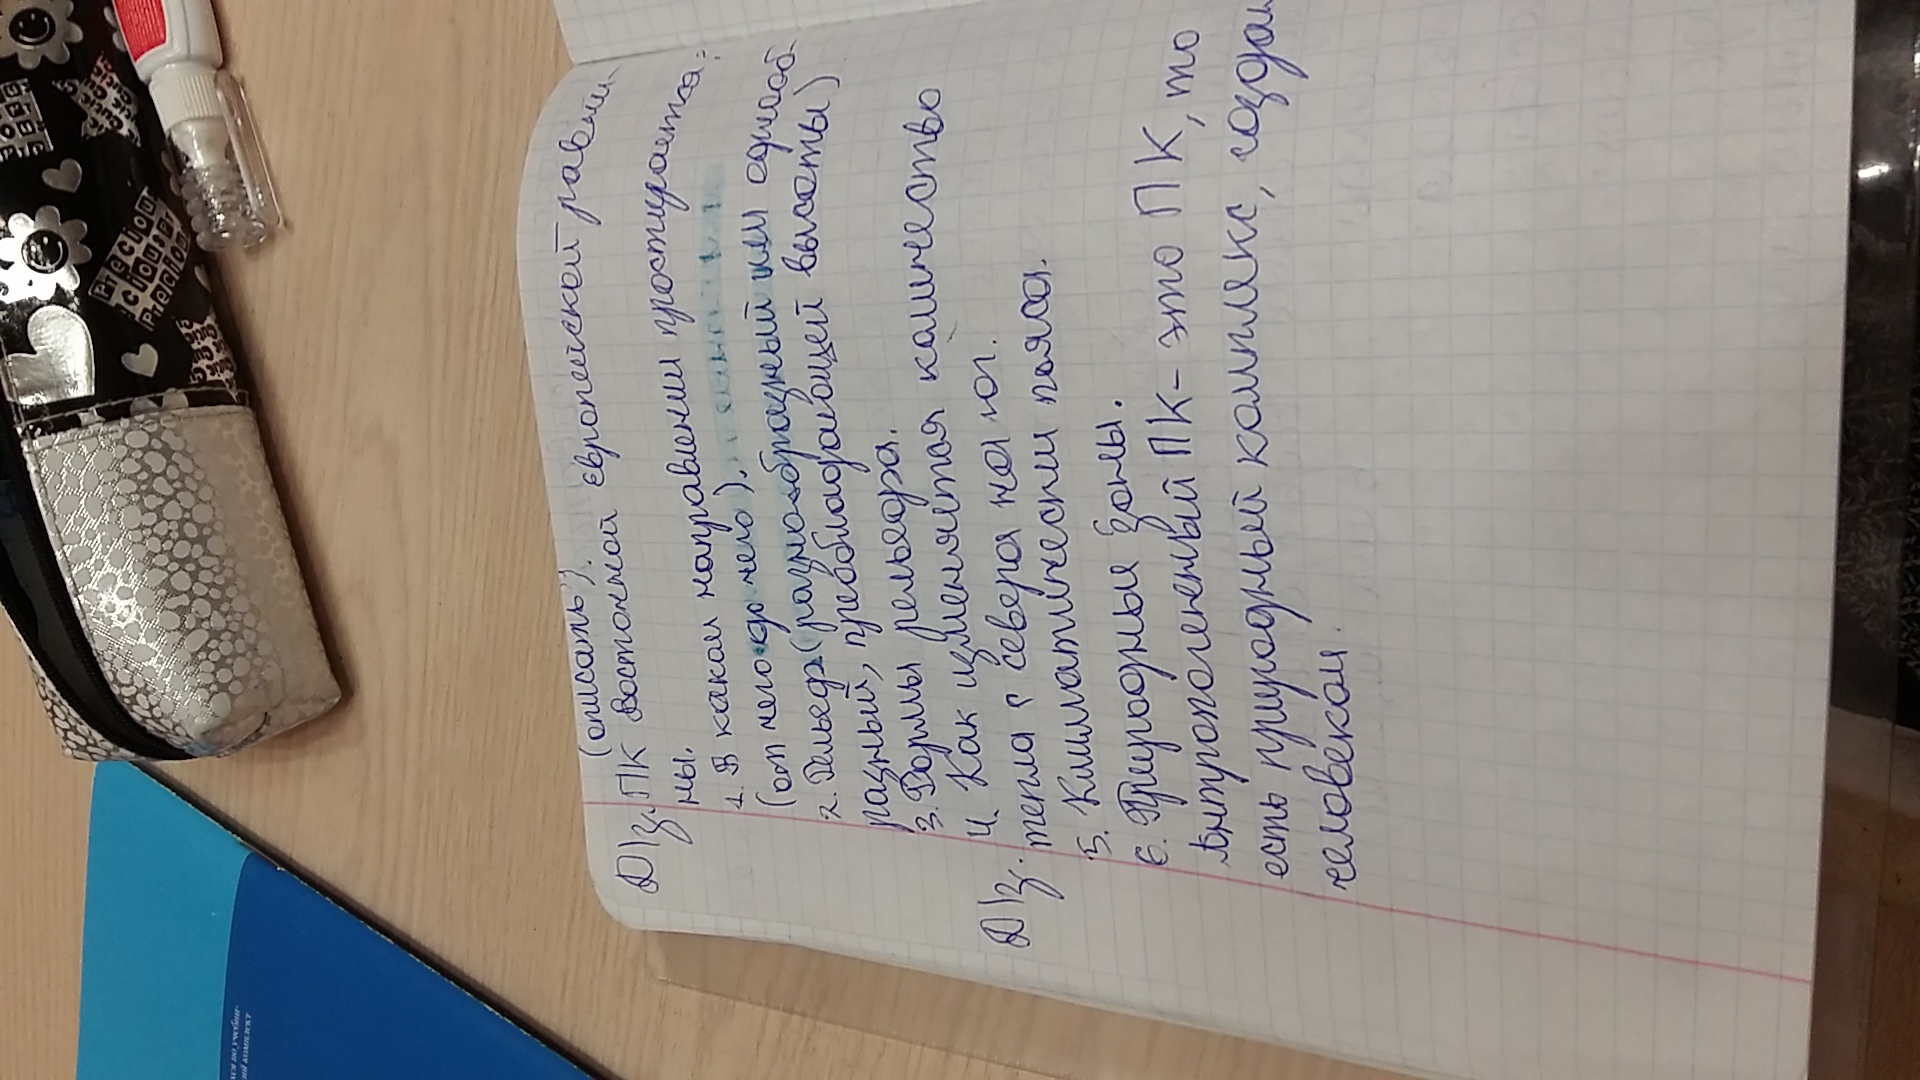 Precious
cious Pr
Precious
ся по учебни-
кий комплект
(описать).
Д/з. ПК Восточной Европейской равни-
ны.
1. В каком направлении простирается:
(от чего до чего).
2. Рельеф (разнообразный или однооб-
разный, преобладающей высоты)
3. Формы рельефа.
Д/з. 4. Как изменяется количество
тепла с севера на юг.
5. Климатически пояса.
6. Природные зоны.
Антропогенный ПК - это ПК, то
есть природный комплекс, создан
человеком.